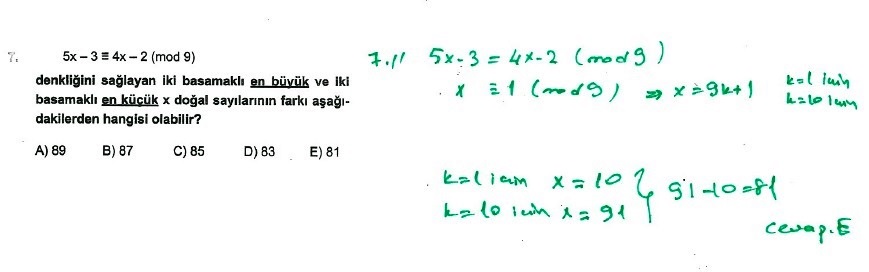 7. 5x – 3 ≡ 4x – 2 (mod 9)
denkliğini sağlayan iki basamaklı en büyük ve iki
basamaklı en küçük x doğal sayılarının farkı aşağı-
dakilerden hangisi olabilir?
A) 89 B) 87 C) 85 D) 83 E) 81
7.// 5x-3 = 4x-2 (mod 9)
x ≡ 1 (mod 9) => x = 9k+1
k=1 için
k=10 için
k=1 için x = 10
k=10 için x = 91
} 91-10=81
cevap.E